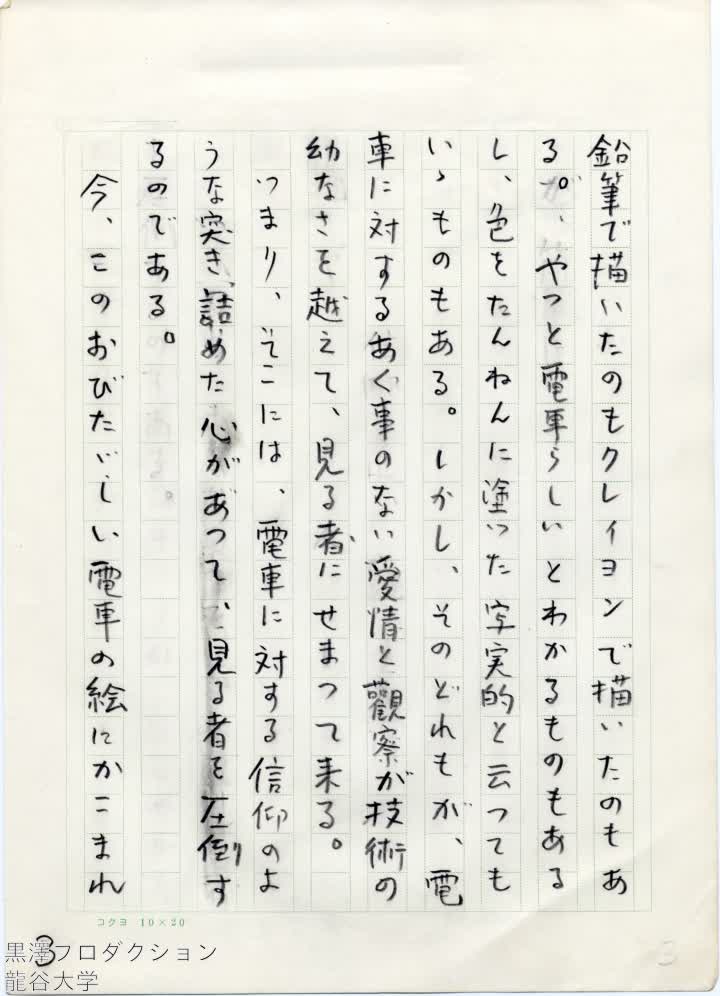 鉛筆で描いたのもクレイヨンで描いたのもあ
る。やつと電車らしいとわかるものもある
し、色をたんねんに塗つた写実的と云つても
いゝものもある。しかし、そのどれもが、電
車に対するあく事のない愛情と觀察が技術の
幼なさを越えて、見る者にせまつて来る。
つまり、そこには、電車に対する信仰のよ
うな突き詰めた心があつて、見る者を圧倒す
るのである。
今、このおびたゞしい電車の絵にかこまれ
コクヨ 10×20
3
3
黒澤プロダクション
龍谷大学